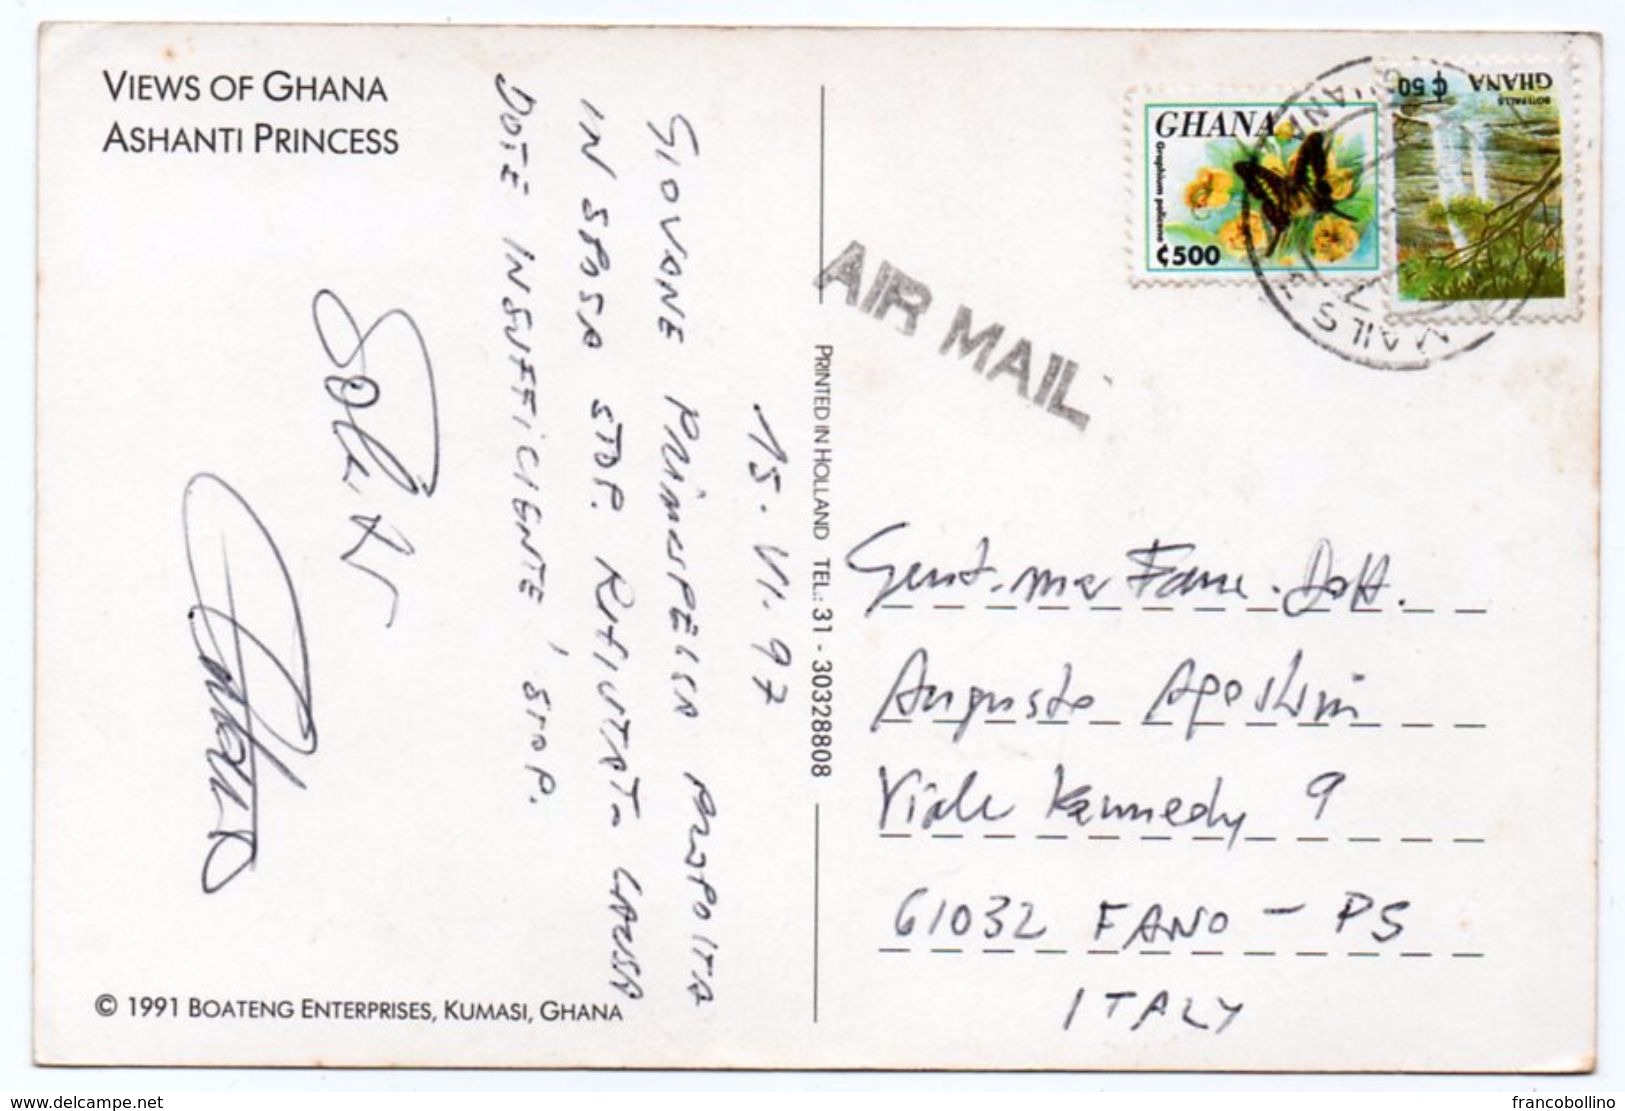 VIEWS OF GHANA
ASHANTI PRINCESS
15.VI.97
GIOVANE PRINCIPESSA
IN SPOSA STOP. RIFIUTATA CAUSA
DOTE INSUFFICIENTE, STOP.
© 1991 BOATENG ENTERPRISES, KUMASI, GHANA
PRINTED IN HOLLAND TEL.: 31 - 30328808
AIR MAIL
GHANA
Graphium policenes
₵500
₵50
GHANA
BOTI FALLS
GHANA
MAILS
Gent.ma Fam. Dott.
Augusto Agostini
Viale Kennedy 9
61032 FANO - PS
ITALY
www.delcampe.net
francobollino